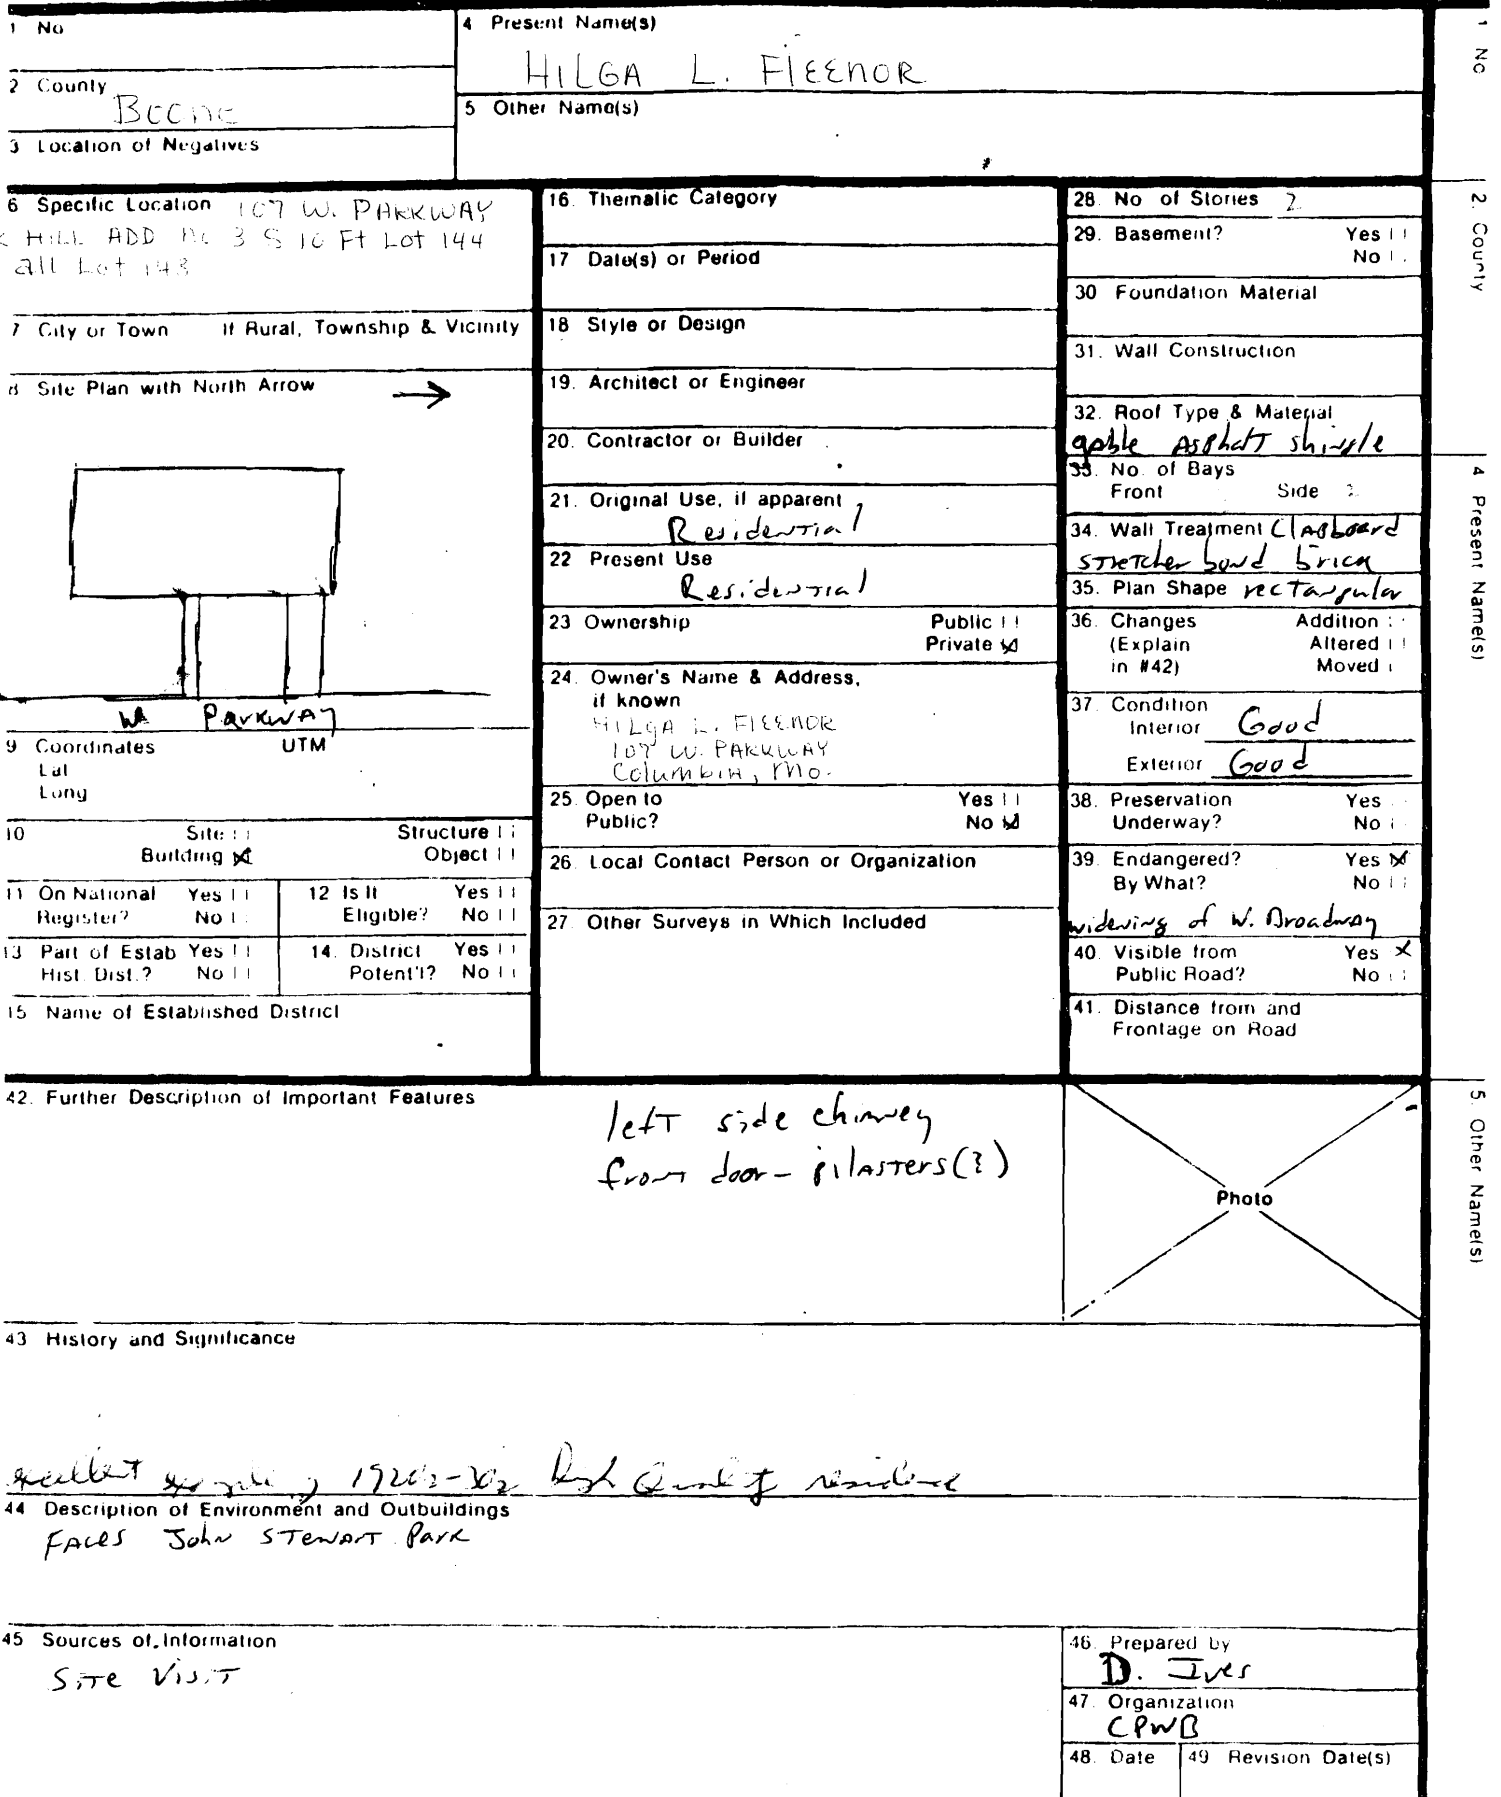 1 No
4 Present Name(s)
HILGA L. FlEENOR
2 County
Boone
5 Other Name(s)
3 Location of Negatives
6 Specific Location 107 W. PARKWAY
HILL ADD No 3 S 10 Ft Lot 144
all Lot 143
7 City or Town If Rural, Township & Vicinity
8 Site Plan with North Arrow
W. PARKWAY
9 Coordinates UTM
Lat
Long
10 Site
Structure
Building
Object
11 On National Register? Yes No
12 Is It Eligible? Yes No
13 Part of Estab Hist. Dist.? Yes No
14. District Potent'l? Yes No
15 Name of Established District
16. Thematic Category
17 Date(s) or Period
18 Style or Design
19. Architect or Engineer
20. Contractor or Builder
21. Original Use, if apparent
Residential
22 Present Use
Residential
23 Ownership Public
Private
24. Owner's Name & Address,
if known
HILGA L. FlEENOR
107 W. PARKWAY
Columbia, Mo.
25. Open to Yes
Public? No
26. Local Contact Person or Organization
27 Other Surveys in Which Included
28. No of Stories 2
29. Basement? Yes
No
30 Foundation Material
31. Wall Construction
32. Roof Type & Material
gable Asphalt shingle
33. No. of Bays
Front Side 2
34. Wall Treatment Clapboard
stretcher bond brick
35. Plan Shape rectangular
36. Changes Addition
(Explain Altered
in #42) Moved
37. Condition
Interior Good
Exterior Good
38. Preservation Yes
Underway? No
39. Endangered? Yes
By What? No
widening of W. Broadway
40. Visible from Yes
Public Road? No
41. Distance from and
Frontage on Road
42. Further Description of Important Features
left side chimney
front door - pilasters(?)
Photo
43 History and Significance
excellent example of 1920's-30s high Quality residence
44 Description of Environment and Outbuildings
FACES John STEWART Park
45 Sources of Information
Site Visit
46. Prepared by
D. Ives
47. Organization
CPWB
48. Date
49 Revision Date(s)
1 No
2. County
4 Present Name(s)
5. Other Name(s)